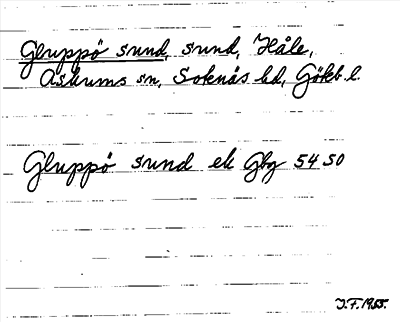 Gluppö sund, sund, Håle,
Askums sn, Sotenäs hd, Götèb. l.
Gluppö sund ek Gbg 5450
I.F. 1955.